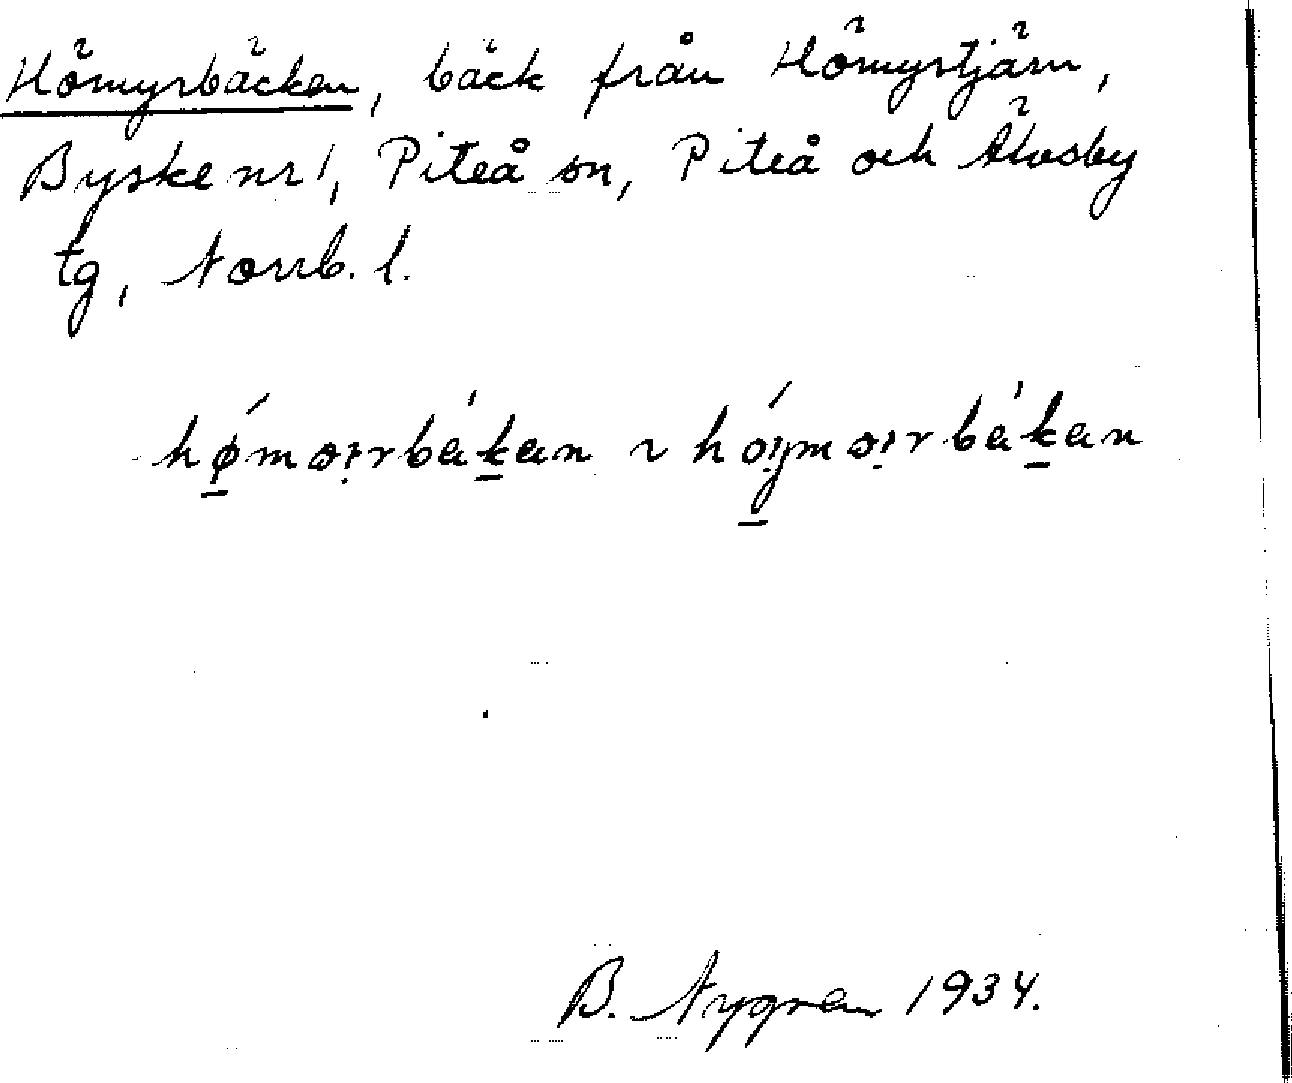 Hömyrbäcken, bäck från Hömyrtjärn,
Byske nr 1, Piteå sn, Piteå och Älvsby
tg, Norrb. l.
B. Nygren 1934.